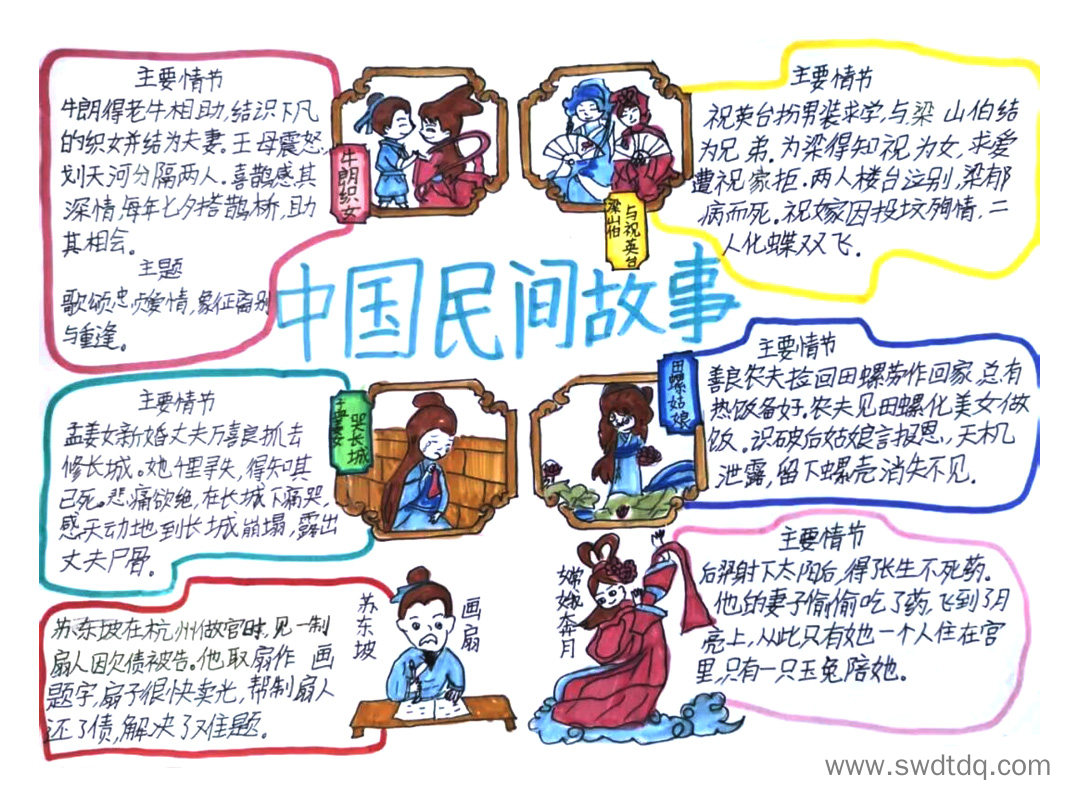 中国民间故事
主要情节
牛朗得老牛相助,结识下凡
的织女并结为夫妻。王母震怒,
划天河分隔两人。喜鹊感其
深情,每年七夕搭鹊桥,助
其相会。
主题
歌颂忠贞爱情,象征离别
与重逢。
牛朗织女
梁山伯
与祝英台
主要情节
祝英台扮男装求学,与梁山伯结
为兄弟。为梁得知祝为女,求爱
遭祝家拒。两人楼台泣别,梁郁
病而死。祝嫁因投坟殉情,二
人化蝶双飞。
主要情节
孟姜女新婚丈夫万喜良抓去
修长城。她千里寻夫,得知其
已死。悲痛欲绝,在长城下痛哭,
感天动地到长城崩塌,露出
丈夫尸骨。
孟姜女
哭长城
田螺姑娘
主要情节
善良农夫捡回田螺劳作回家,总有
热饭备好。农夫见田螺化美女做
饭。识破后姑娘言报恩,天机
泄露,留下螺壳消失不见。
苏东坡在杭州做官时,见一制
扇人因欠债被告。他取扇作画
题字,扇子很快卖光,帮制扇人
还了债,解决了难题。
苏东坡
画扇
嫦娥奔月
主要情节
后羿射下太阳后,得张生不死药。
他的妻子偷偷吃了药,飞到了月
亮上,从此只有她一个人住在宫
里,只有一只玉兔陪她。
www.swdtdq.com